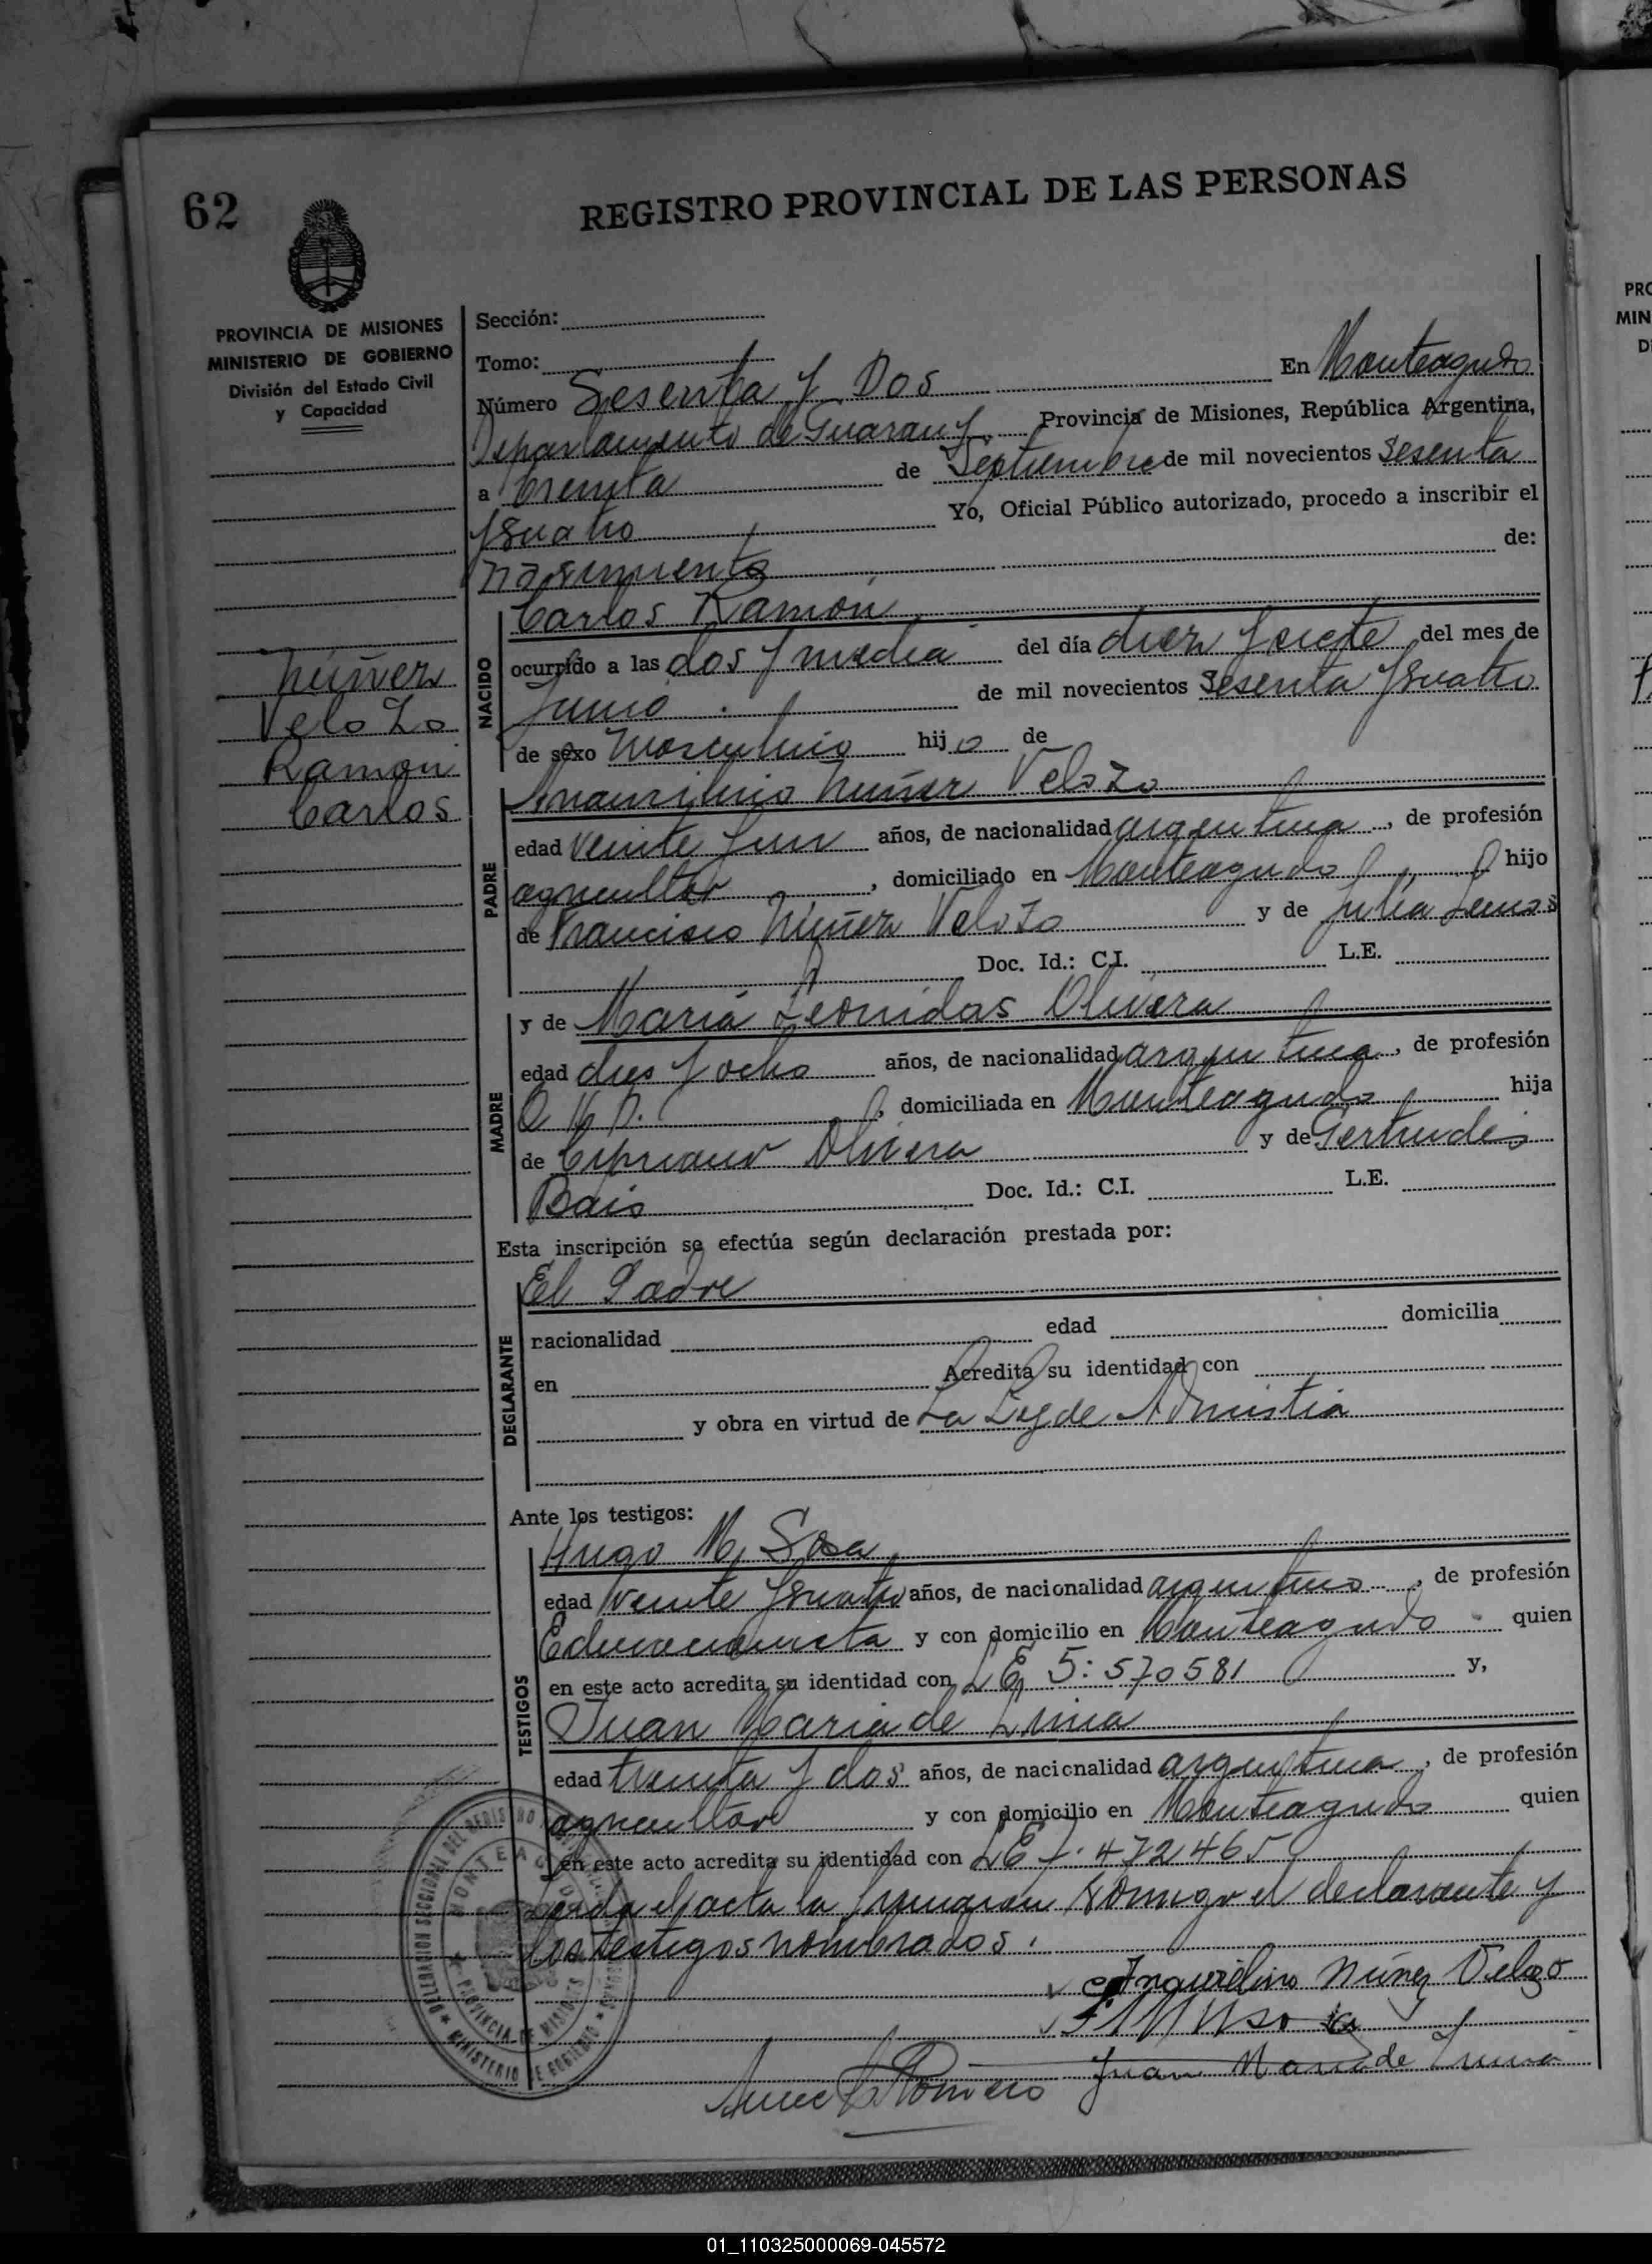 62
REGISTRO PROVINCIAL DE LAS PERSONAS
PROVINCIA DE MISIONES
MINISTERIO DE GOBIERNO
División del Estado Civil
y Capacidad
Núñez
Velozo
Ramon
Carlos
Sección:
Tomo:
Número Sesenta y Dos En Monteagudo
Departamento de Guarany, Provincia de Misiones, República Argentina,
a treinta de Septiembre de mil novecientos sesenta
ycuatro Yo, Oficial Público autorizado, procedo a inscribir el
nasimiento de:
NACIDO
Carlos Ramón
ocurrido a las dos y media del día diez y siete del mes de
Junio de mil novecientos sesenta ycuatro
de sexo Masculino hijo de
PADRE
Núñez Velozo
edad veinte y un años, de nacionalidad argentina, de profesión
agricultor, domiciliado en Monteagudo hijo
de Francisco Núñez Velozo y de Julia Lemos
Doc. Id.: C.I. L.E.
MADRE
y de María Leonidas Olivera
edad dies y ocho años, de nacionalidad argentina, de profesión
domiciliada en Monteagudo hija
de Cipriano Olivera y de Gertrudis
Bais Doc. Id.: C.I. L.E.
Esta inscripción se efectúa según declaración prestada por:
DECLARANTE
El Padre
nacionalidad edad domicilia
en Acredita su identidad con
y obra en virtud de La Ley de Admistia
Ante los testigos:
TESTIGOS
Hugo M. Sosa
edad veinte ycuatro años, de nacionalidad argentino, de profesión
y con domicilio en Monteagudo quien
en este acto acredita su identidad con LE 5:570581 y,
Juan Maria de Lima
edad treinta y dos años, de nacionalidad argentina, de profesión
agricultor y con domicilio en Monteagudo quien
en este acto acredita su identidad con LE 7.472465
Leida el acta la firmaron conmigo el declarante y
los testigos nombrados.
Núñez Velozo
Juan Maria de Lima
Romero
DELEGACION SECCIONAL DEL REGISTRO
MONTEAGUDO
PROVINCIA DE MISIONES
MINISTERIO DE GOBIERNO
PRO
MIN
D
01_110325000069-045572